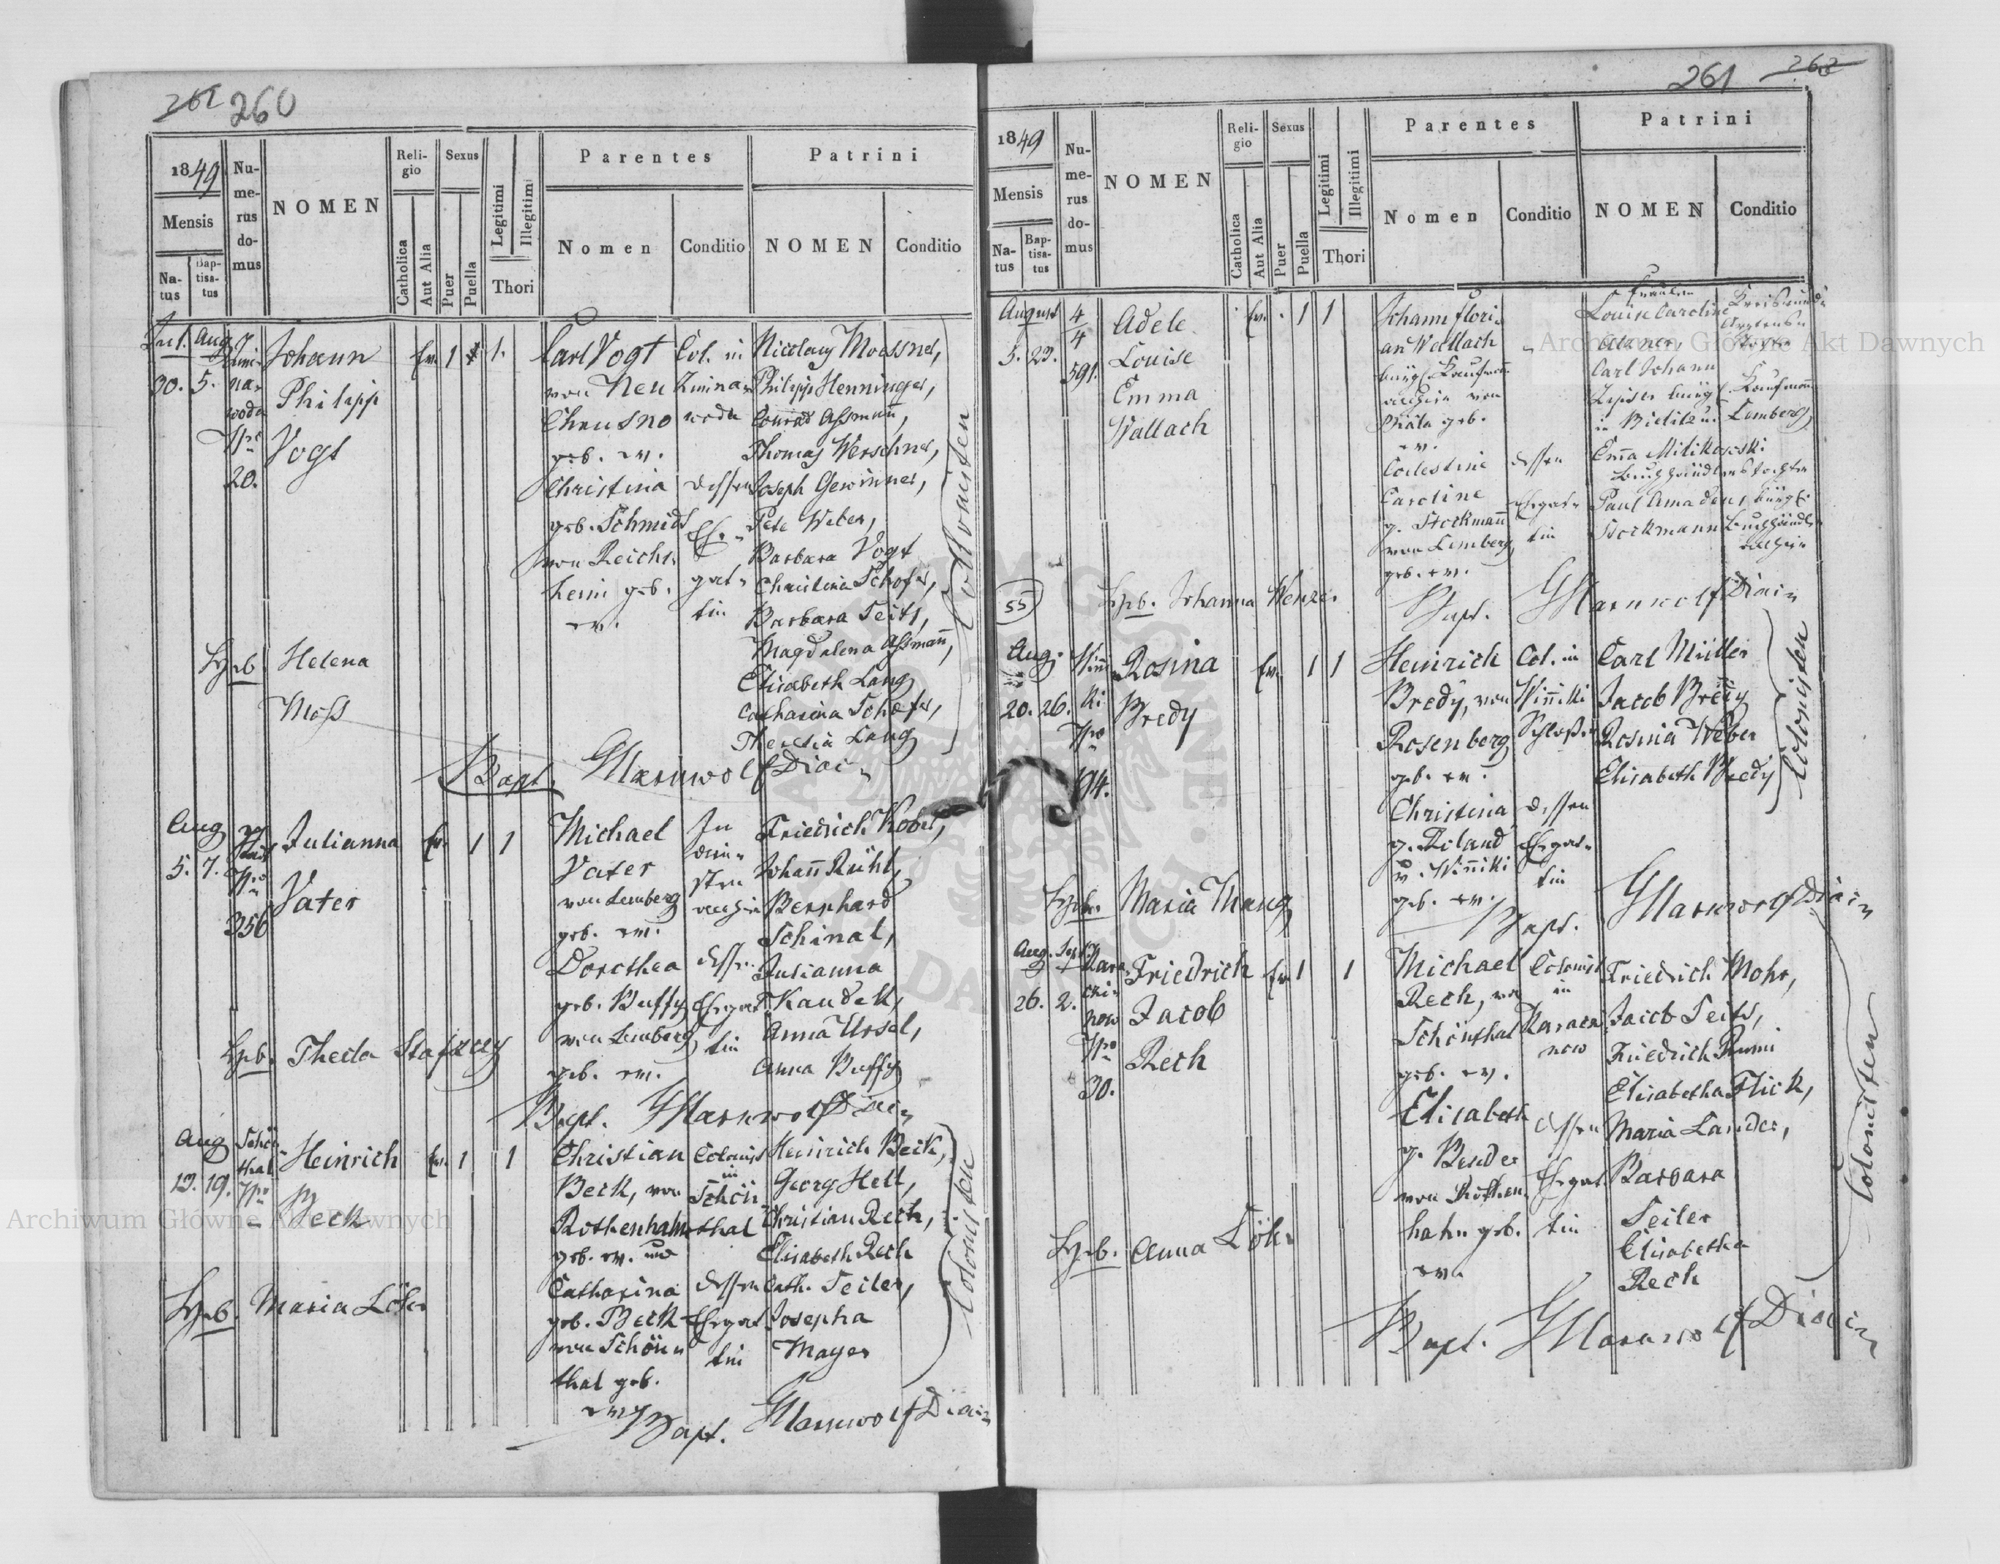 261 260
1849
Mensis
Natus
Baptisatus
Numerus domus
NOMEN
Religio
Catholica
Aut Alia
Sexus
Puer
Puella
Legitimi
Illegitimi
Thori
Parentes
Nomen
Conditio
Patrini
NOMEN
Conditio
Aug.
30. 5.
Johann
Philipp
Vogt
Nro
20.
Ev. 1 1.
Carl Vogt
von Neu
Chrusno
geb. ev.
Christina
geb. Schmidt
von Reichs
heim geb.
ev.
Col. in
Zimna
woda
dessen
Ehe
gat
tin
Nicolaus Moessner,
Philipp Henninger,
Conrad Assmann,
Thomas Werschner,
Joseph Gewinner,
Pete Weber,
Barbara Vogt
Christina Schofer,
Barbara Seits,
Magdalena Assmann,
Elisabeth Lang
Catharina Schofer,
Theresia Lang
Colonisten
Heb. Helena
Moss
Bapt. GMarnwolf Diac
Aug
5. 7.
Nro
356
Julianna
Vater
Ev. 1 1
Michael
Vater
von Lemberg
geb. ev.
Dorothea
geb. Buffy
von Lemberg
geb. ev.
Ehegat
tin
Friedrich Kobel,
Johann Rühl,
Bernhard
Schinal,
Julianna
Kaudek,
Anna Ursel,
Anna Buffy
Heb. Thecla
Bapt. GMarnwolf Diac
Aug
13. 19.
Schön
thal
Nro
Heinrich
Beck
Ev. 1 1
Christian
Beck, von
Rothenhahn
geb. ev. und
Catharina
geb. Beck
von Schön
thal geb.
ev.
Colonist
in
Schön
thal
dessen
Ehegat
tin
Heinrich Beck,
Georg Hell,
Christian Rech,
Elisabeth Rech
Cath. Seiler,
Josepha
Mayer
Colonisten
Heb. Maria Löhr
Bapt. GMarnwolf Diac
261 262
1849
Mensis
Natus
Baptisatus
Numerus domus
NOMEN
Religio
Catholica
Aut Alia
Sexus
Puer
Puella
Legitimi
Illegitimi
Thori
Parentes
Nomen
Conditio
Patrini
NOMEN
Conditio
August
5. 23.
4/4
591.
Adele
Louise
Emma
Wallach
Ev. 1 1
Johann Flori
an Wallach
geb.
ev.
Coelestine
Caroline
g. Stockmann
von Lemberg
geb. ev.
dessen
Ehegat
tin
Fräulein
Louise Caroline
Carl Johann
Kaufmann
Lemberg
Emma Milikowski
Buchhändlerstochter
Paul Amadeus
Stockmann
bürgl.
Buchhändler
55
Heb. Johanna Wenze
Bapt. GMarnwolf Diac
Aug.
20. 26.
Winni
ki
Nro
94.
Rosina
Bredy
Ev. 1 1
Heinrich
Bredy, von
Rosenberg
geb. ev.
Christina
g. Roland
v. Winniki
geb. ev.
Col. in
Winniki
dessen
Ehegat
tin
Carl Müller
Jacob Bredy
Rosina Weber
Elisabeth Bredy
Colonisten
Heb. Maria Mang
Bapt. GMarnwolf Diac
Aug. Sept.
26. 2.
Nro
30.
Friedrich
Jacob
Rech
Ev. 1 1
Michael
Rech, von
Schönthal
geb. ev.
Elisabeth
g. Bender
von Rothen
hahn geb.
ev.
Colonist
in
dessen
Ehegat
tin
Friedrich Mohr,
Jacob Seits,
Friedrich
Elisabetha Flick,
Maria Lander,
Barbara
Seiler
Elisabetha
Rech
Colonisten
Heb. Anna Löhr
Bapt. GMarnwolf Diac
Archiwum Główne Akt Dawnych
Archiwum Główne Akt Dawnych